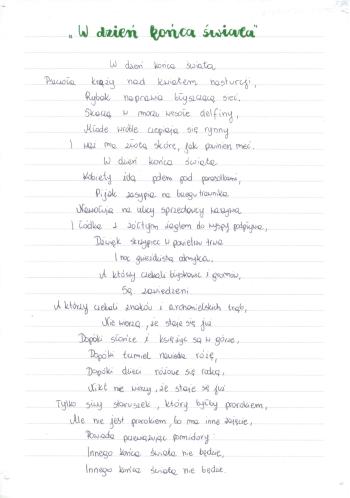 „W dzień końca świata"
W dzień końca świata
Pszczoła krąży nad kwiatem nasturcji,
Rybak naprawia błyszczącą sieć.
Skaczą w morzu wesołe delfiny,
Młode wróble czepiają się rynny
I wąż ma złotą skórę, jak powinien mieć.
W dzień końca świata
Kobiety idą polem pod parasolkami,
Pijak zasypia na brzegu trawnika
Nawołują na ulicy sprzedawcy warzywa
I łódka z żółtym żaglem do wyspy podpływa,
Dźwięk skrzypiec w powietrzu trwa
I noc gwieździstą odmyka.
A którzy czekali błyskawic i gromów,
Są zawiedzeni
A którzy czekali znaków i archanielskich trąb,
Nie wierzą, że staje się już
Dopóki słońce i księżyc są w górze,
Dopóki trzmiel nawiedza różę,
Dopóki dzieci różowe się rodzą,
Nikt nie wierzy, że staje się już
Tylko siwy staruszek, który byłby prorokiem,
Ale nie jest prorokiem, bo ma inne zajęcie,
Powiada przewiązując pomidory
Innego końca świata nie będzie,
Innego końca świata nie będzie.